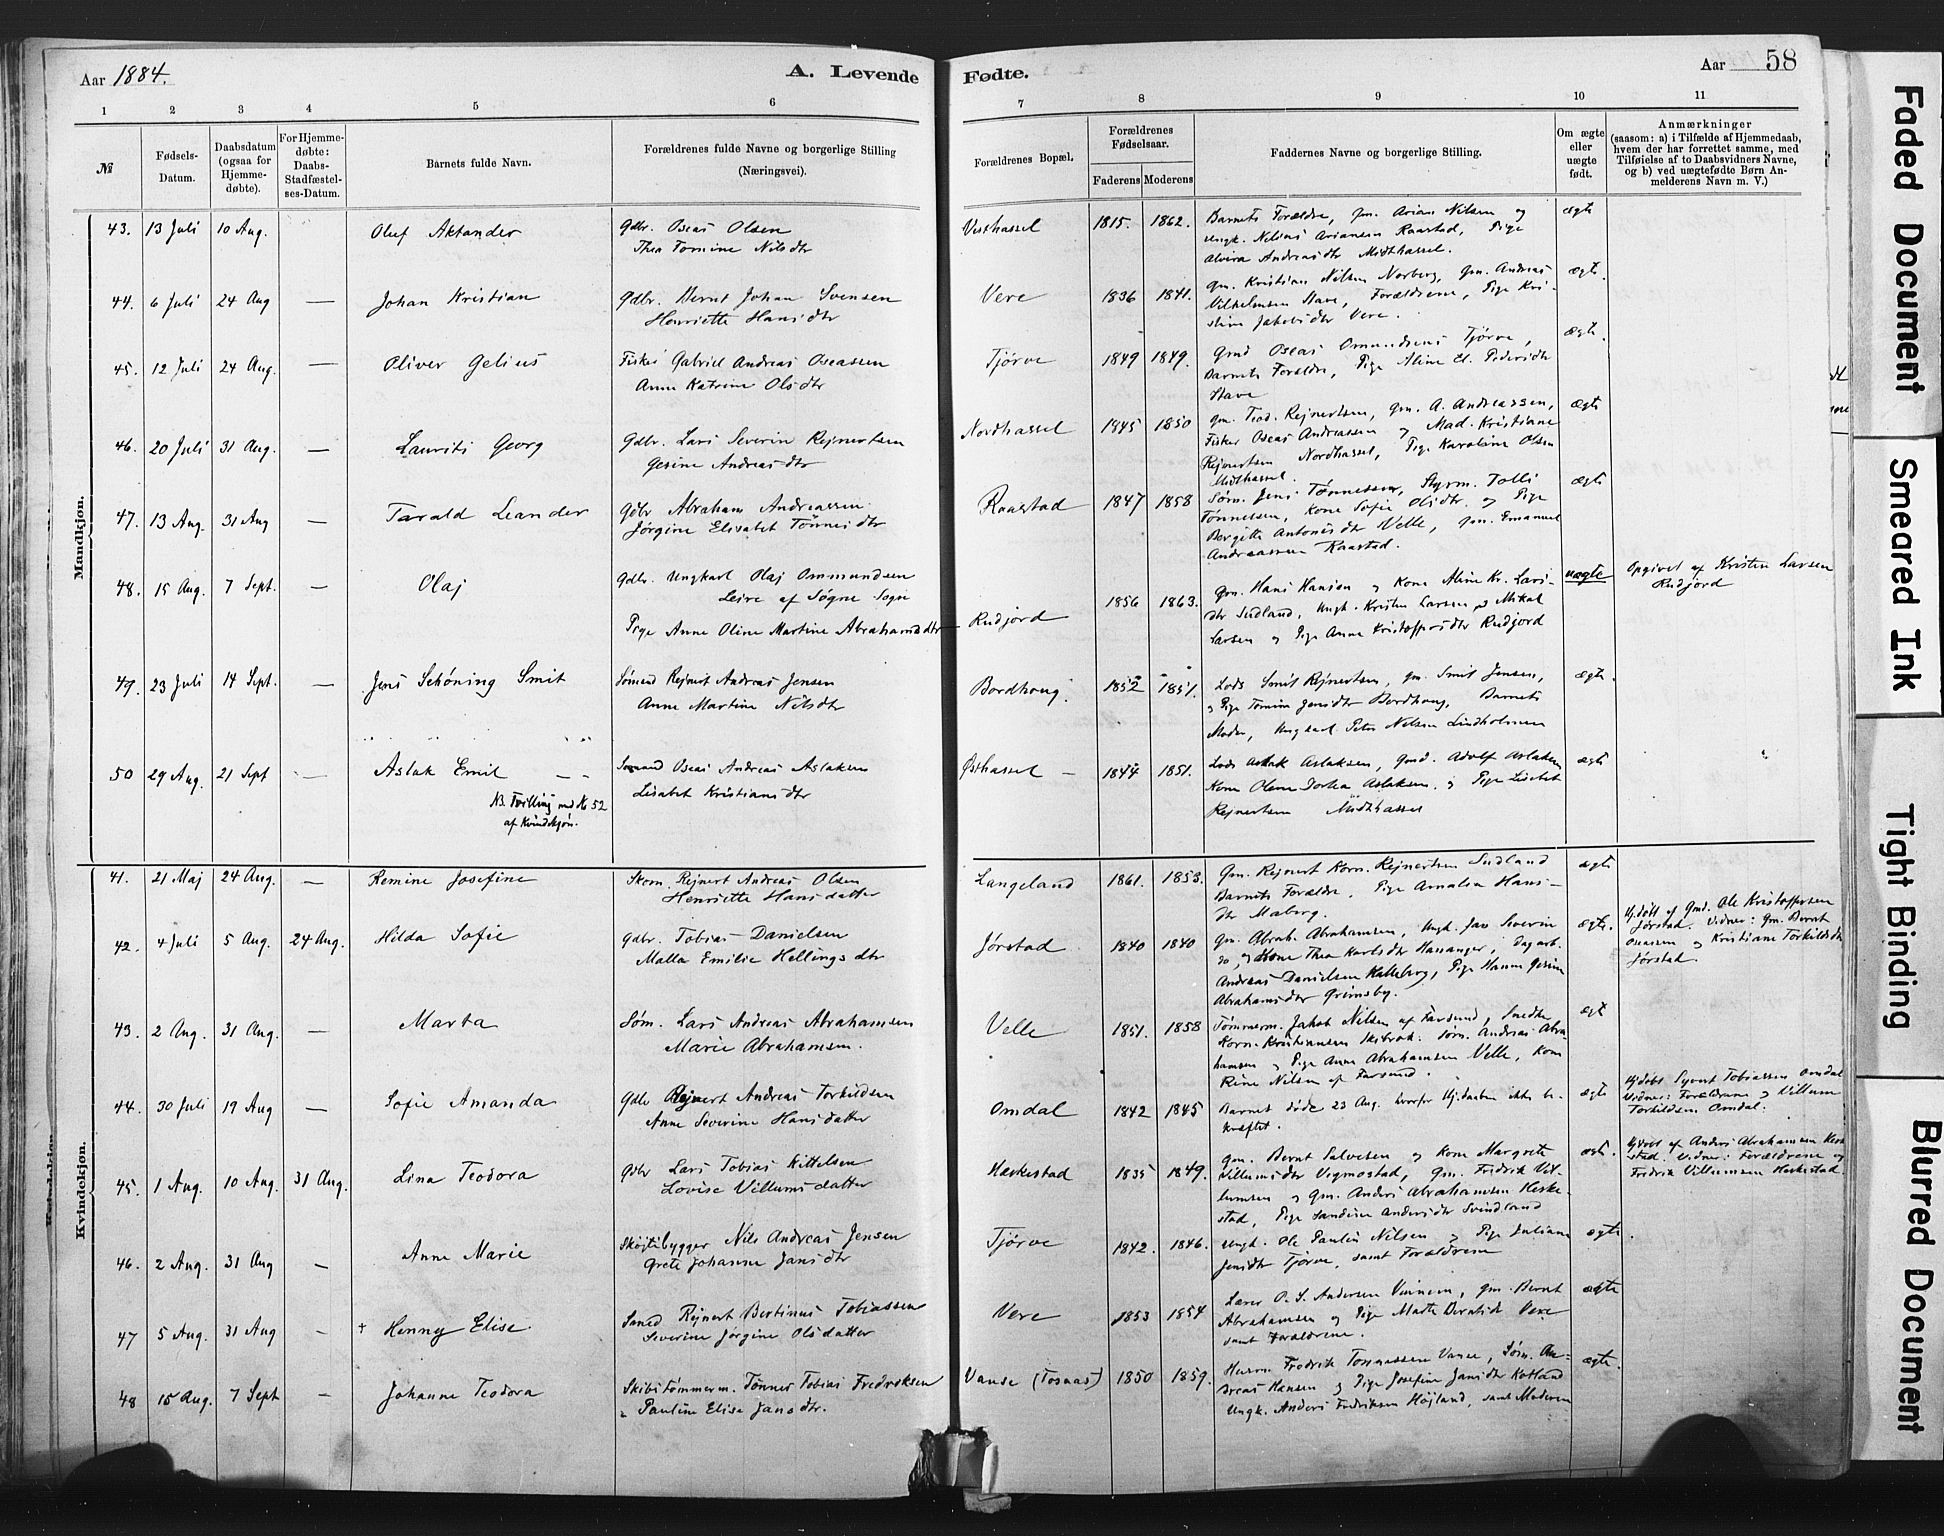 Aar 1884.
A. Levende
Fødte.
Aar 58
1 2 3 4 5 6 7 8 9 10 11
№
Fødsels-Datum.
Daabsdatum (ogsaa for Hjemme-døbte).
For Hjemme-døbte: Daabs-Stadfæstel-ses-Datum.
Barnets fulde Navn.
Forældrenes fulde Navne og borgerlige Stilling
(Næringsvei).
Forældrenes Bopæl.
Forældrenes Fødselsaar.
Faderens Moderens
Faddernes Navne og borgerlige Stilling.
Om ægte eller uægte født.
Anmærkninger
(saasom: a) i Tilfælde af Hjemmedaab,
hvem der har forrettet samme, med
Tilføielse af to Daabsvidners Navne,
og b) ved uægtefødte Børn An-
melderens Navn m. V.)
Mandkjøn.
43. 13 Juli 10 Aug. Oluf Aktander
Gdbr. Oseas Olsen
Thea Tomine Nilsdtr
Vesthassel 1815. 1862.
Barnets Forældre, gm. Arian Nilsen og
Ungk. Nelius Ariansen Raastad, Pige
Alvira Andreasdtr Midthassel.
ægte
44. 6 Juli 24 Aug — Johan Kristian
Gdbr. Bernt Johan Svensen
Henriette Hansdtr
Vere 1836 1841.
gm. Kristian Nilsen Norberg, gm. Andreas
Vilhelmsen Stave, Forældrene, Pige Kri-
stine Jakobsdtr Vere.
ægte.
45. 12 Juli 24 Aug. — Oliver Gelius
Fisker Gabriel Andreas Oseassen
Anne Katrine Olsdtr
Tjørve 1849 1849.
Gmd Oseas Omundsens Tjørve,
Barnets Forældre, Pige Aline El. Pedersdtr
Stave
ægte.
46. 20 Juli 31 Aug. — Laurits Georg
Gdbr. Lars Severin Rejnertsen
Gesine Andreasdtr
Nordhassel 1845 1850
gm. Teod. Rejnertsen, gm. A. Andreassen,
Fisker Oseas Andreassen og Mad. Kristiane
Rejnertsen Nordhassel, Pige Karoline Olsen
Midthassel.
ægte
47. 13 Aug. 31 Aug — Tarald Leander
Gdbr Abraham Andreassen
Jørgine Elisabet Tønnesdtr
Raastad 1847 1858
Søm. Jens Tønnessen, Styrm. Tolli
Tønnessen, Kone Sofie Olsdtr. og Pige
Bergitte Antonisdtr Velle, gm. Emanuel
Andreassen Raastad.
ægte
48. 15 Aug. 7 Sept. — Olaj
Gdbr. Ungkarl Olaj Ommundsen
Leire af Søgne Sogn
Pige Anne Oline Martine Abrahamsdtr
Rudjord 1856 1863.
gm. Hans Hansen og Kone Aline Kr. Lars-
dtr Sudland, Ungk. Kristen Larsen og Mikal
Larsen og Pige Anne Kristoffersdtr Rudjord
uægte
Opgivet af Kristen Larsen
Rudjord
49. 23 Juli 14 Sept. — Jens Schøning Smit
Sømand Rejnert Andreas Jensen
Anne Martine Nilsdtr
Bordhoug. 1852 1857.
Lods Smit Rejnertsen, gm. Smit Jensen,
og Pige Tomine Jensdtr Bordhoug, Barnets
Moder, Ungkarl Peter Nelsen Lindholmen
ægte.
50 29 Aug. 21 Sept — Aslak Emil — —
NB. Tvilling med No 52
af Kvindekjøn.
Sømand Oseas Andreas Aslaksen
Lisabet Kristiansdtr
Østhassel — 1844 1851.
Lods Aslak Aslaksen, Gmd. Adolf Aslaksen
Kone Olene Dorthea Aslaksen og Pige Lisebet
Rejnertsen Midthassel
ægte
Kvindekjøn.
41. 21 Maj 24 Aug. — Remine Josefine
Skom. Rejnert Andreas Olsen
Henriette Hansdatter
Langeland 1861. 1853.
Gm. Rejnert Korn. Rejnertsen Sudland
Barnets Forældre. Pige Amalia Hans-
dtr Maberg.
ægte
42. 4 Juli 5 Aug. 24 Aug. Hilda Sofie
Gdbr. Tobias Danielsen
Malla Emilie Hellings dtr
Jørstad 1840 1840
gm. Abrah. Abrahamsen, Ungk. Jas Severin
do, og Kone Thea Karlsdtr Hassanger, Dagarb.
Andreas Danielsen Kalleberg, Pige Hanne Gesine
Abrahamsdtr Grimsby.
ægte.
Hj.døbt af Gmd. Ole Kristoffersen
Jørstad. Vidner: Gm. Bernt
Oseassen og Kristiane Torkildsdtr
Jørstad.
43. 2 Aug. 31 Aug. — Marta
Søm. Lars Andreas Abrahamsen
Marie Abrahamsen.
Velle 1851. 1858
Tømmerm. Jakob Nilsen af Farsund, Smedm
Korn. Kristiansen Skibrok. Søm. Andreas Abra-
hamsen og Pige Anne Abrahamsen Velle, Kone
Rine Nilsen af Farsund.
ægte
44. 30 Juli 19 Aug — Sofie Amanda
Gdbr Rejnert Andreas Torkildsen
Anne Severine Hansdatter
Omdal 1842 1845
Barnet døde 23 Aug. hvorfor Hj.daaben ikke be-
kræftet.
ægte
Hj.døbt Syvert Tobiassen Omdal
Vidner: Forældrene og Villum
Torkildsen Omdal.
45. 1 Aug. 10 Aug. 31 Aug. Lina Teodora
Gdbr Lars Tobias Kittelsen
Lovise Villumsdatter
Herkestad 1835 1849.
gm. Bernt Salvesen og Kone Margrete
Villumsdtr Vigmostad, Gm. Fredrik Vil-
lumsen og gm. Anders Abrahamsen Herke-
stad, Pige Sandine Andersdtr Svindland
ægte.
Hj.døbt af Anders Abrahamsen Herke-
stad. Vidner: Forældrene og
Fredrik Villumsen Herkestad.
46. 2 Aug. 31 Aug — Anne Marie
Skøjtebygger Nils Andreas Jensen
Grete Johanne Jansdtr
Tjørve 1842. 1846.
Ungk. Ole Paulin Nilsen og Pige Juliane
Jensdtr Tjørve, samt Forældrene
ægte.
47 5 Aug. 31 Aug — † Henny Elise.
Sømd Rejnert Bertinus Tobiassen
Severine Jørgine Olsdatter
Vere 1853 1854
Lærer O. S. Andersen Vinnem, gm. Bernt
Abrahamsen og Pige Marte Berntsdtr Vere
samt Forældrene.
ægte
48 15 Aug. 7 Sept — Johanne Teodora
Skibstømmerm. Tønnes Tobias Fredriksen
Pauline Elise Jansdtr.
Vanse (Tosaas) 1850 1859.
Husm. Fredrik Tommassen Vanse, Søm. An-
dreas Hansen og Pige Josefine Jansdtr Kolland
Ungk. Anders Fredriksen Højland, samt Moderen
ægte.
Faded Document
Smeared Ink
Tight Binding
Blurred Document